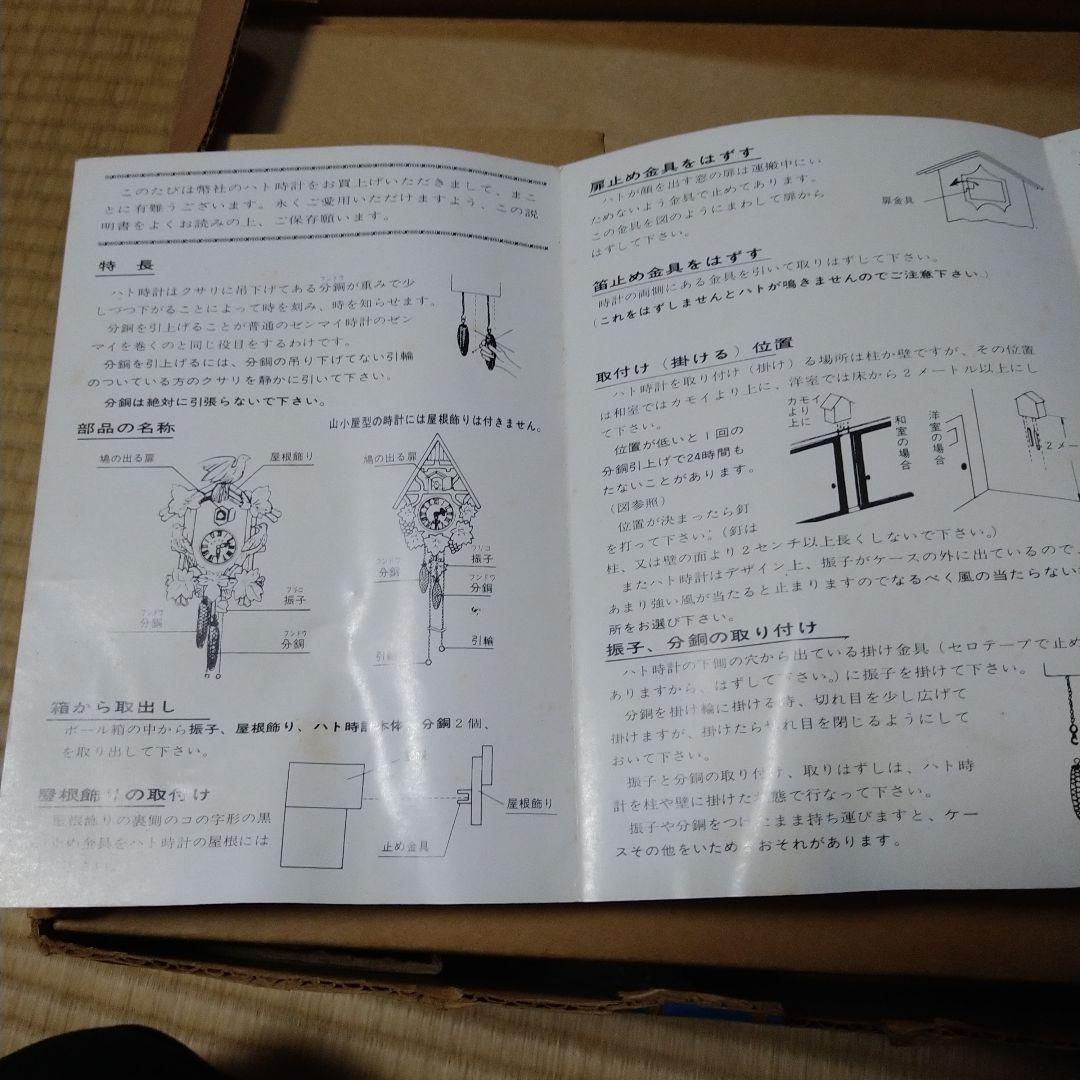 このたびは幣社のハト時計をお買上げいただきまして、まこ
とに有難うございます。永くご愛用いただけますよう、この説
明書をよくお読みの上、ご保存願います。
特長
ハト時計はクサリに吊下げてある分銅が重みで少
フンドウ
しづつ下がることによって時を刻み、時を知らせます。
分銅を引上げることが普通のゼンマイ時計のゼン
マイを巻くのと同じ役目をするわけです。
分銅を引上げるには、分銅の吊り下げてない引輪
のついている方のクサリを静かに引いて下さい。
分銅は絶対に引張らないで下さい。
部品の名称
山小屋型の時計には屋根飾りは付きません。
鳩の出る扉
屋根飾り
フリコ
振子
フンドウ
分銅
フンドウ
分銅
鳩の出る扉
フリコ
振子
フンドウ
分銅
フンドウ
分銅
引輪
引輪
箱から取出し
ボール箱の中から振子、屋根飾り、ハト時計本体、分銅2個、
を取り出して下さい。
屋根飾りの取付け
屋根飾りの裏側のコの字形の黒
止め金具をハト時計の屋根には
さい。
屋根飾り
止め金具
扉止め金具をはずす
ハトが顔を出す窓の扉は運搬中にい
ためないよう金具で止めてあります。
この金具を図のようにまわして扉から
はずして下さい。
扉金具
笛止め金具をはずす
時計の両側にある金具を引いて取りはずして下さい。
(これをはずしませんとハトが鳴きませんのでご注意下さい。)
取付け(掛ける)位置
ハト時計を取り付け(掛け)る場所は柱か壁ですが、その位置
は和室ではカモイより上に、洋室では床から2メートル以上にし
て下さい。
位置が低いと1回の
分銅引上げで24時間も
たないことがあります。
(図参照)
位置が決まったら釘
を打って下さい。(釘は
柱、又は壁の面より2センチ以上長くしないで下さい。)
カモイより上に
和室の場合
洋室の場合
2メー
またハト時計はデザイン上、振子がケースの外に出ているので、
あまり強い風が当たると止まりますのでなるべく風の当たらない
所をお選び下さい。
振子、分銅の取り付け
ハト時計の下側の穴から出ている掛け金具(セロテープで止め
ありますから、はずして下さい。)に振子を掛けて下さい。
分銅を掛け輪に掛ける時、切れ目を少し広げて
掛けますが、掛けたら切れ目を閉じるようにして
おいて下さい。
振子と分銅の取り付け、取りはずしは、ハト時
計を柱や壁に掛けた状態で行なって下さい。
振子や分銅をつけたまま持ち運びますと、ケー
スその他をいためるおそれがあります。